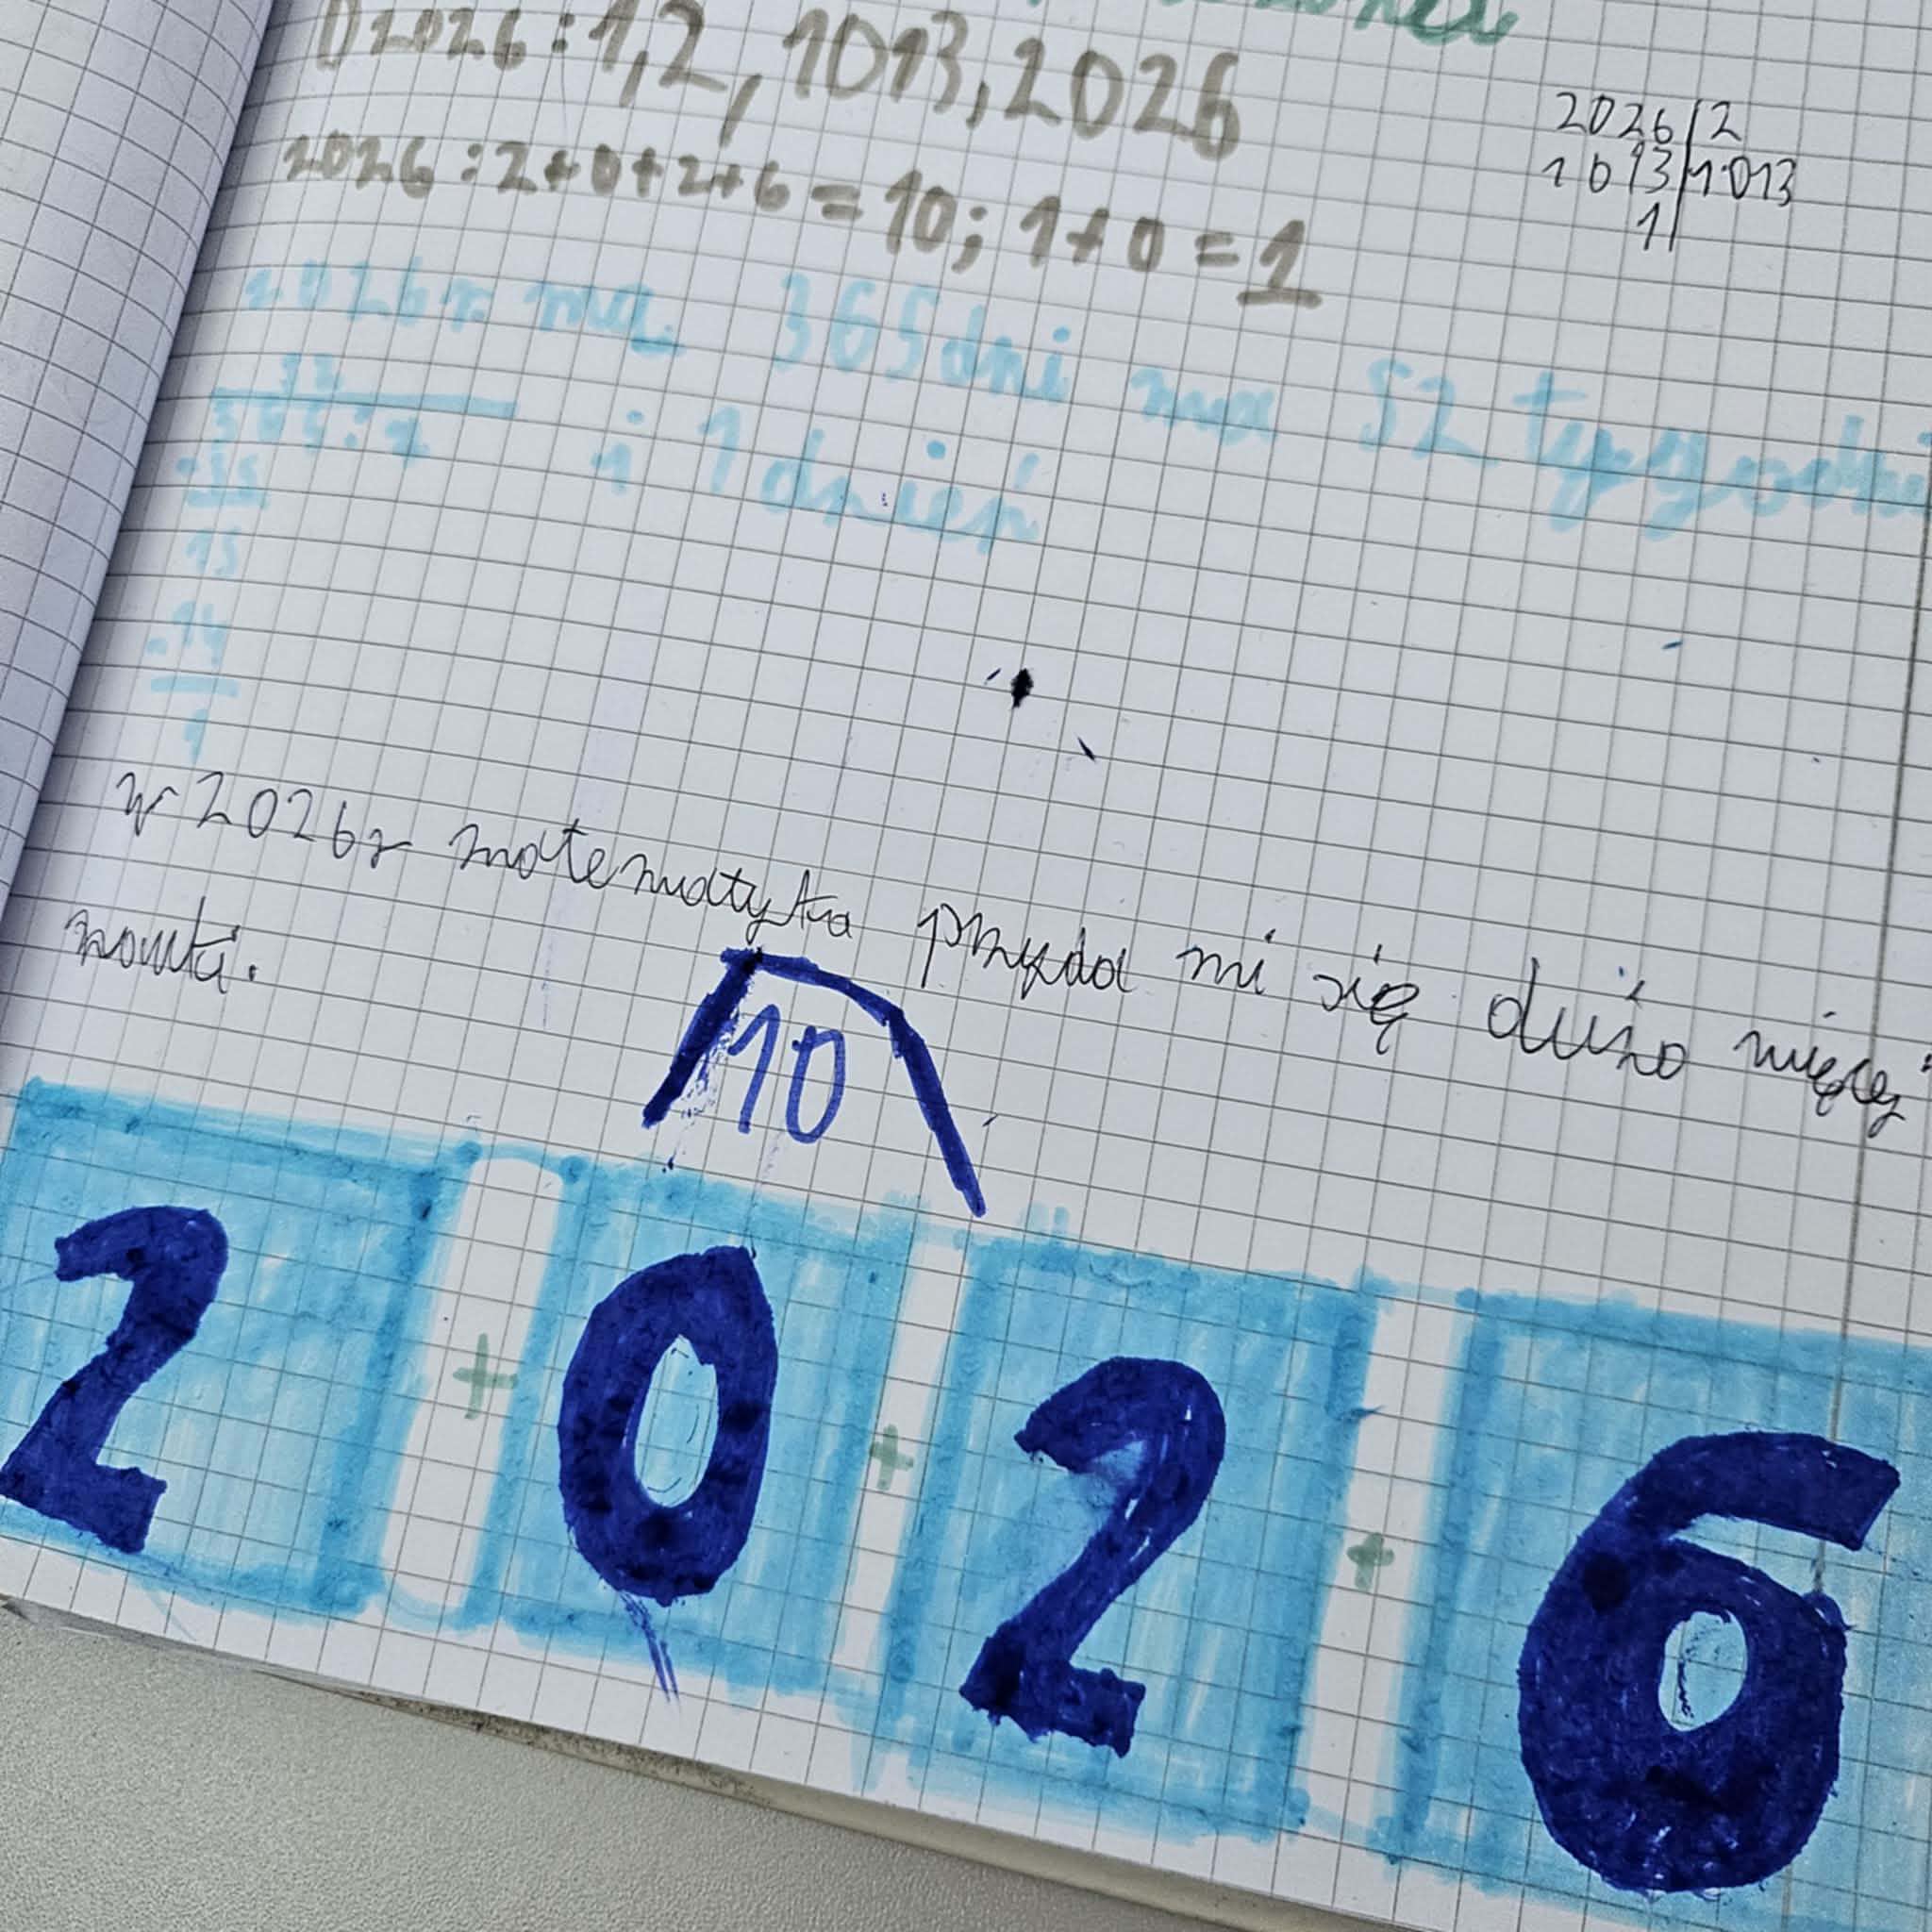 D2026:1,2,1013,2026
2026|2
1013|1013
1|
2026:2+0+2+6=10; 1+0=1
2026r. ma 365dni ma 52 tygodni
365:7 i 1 dzień
-35
15
-14
1
w 2026r matematyka przyda mi się dużo więcej
10
2 + 0 + 2 + 6